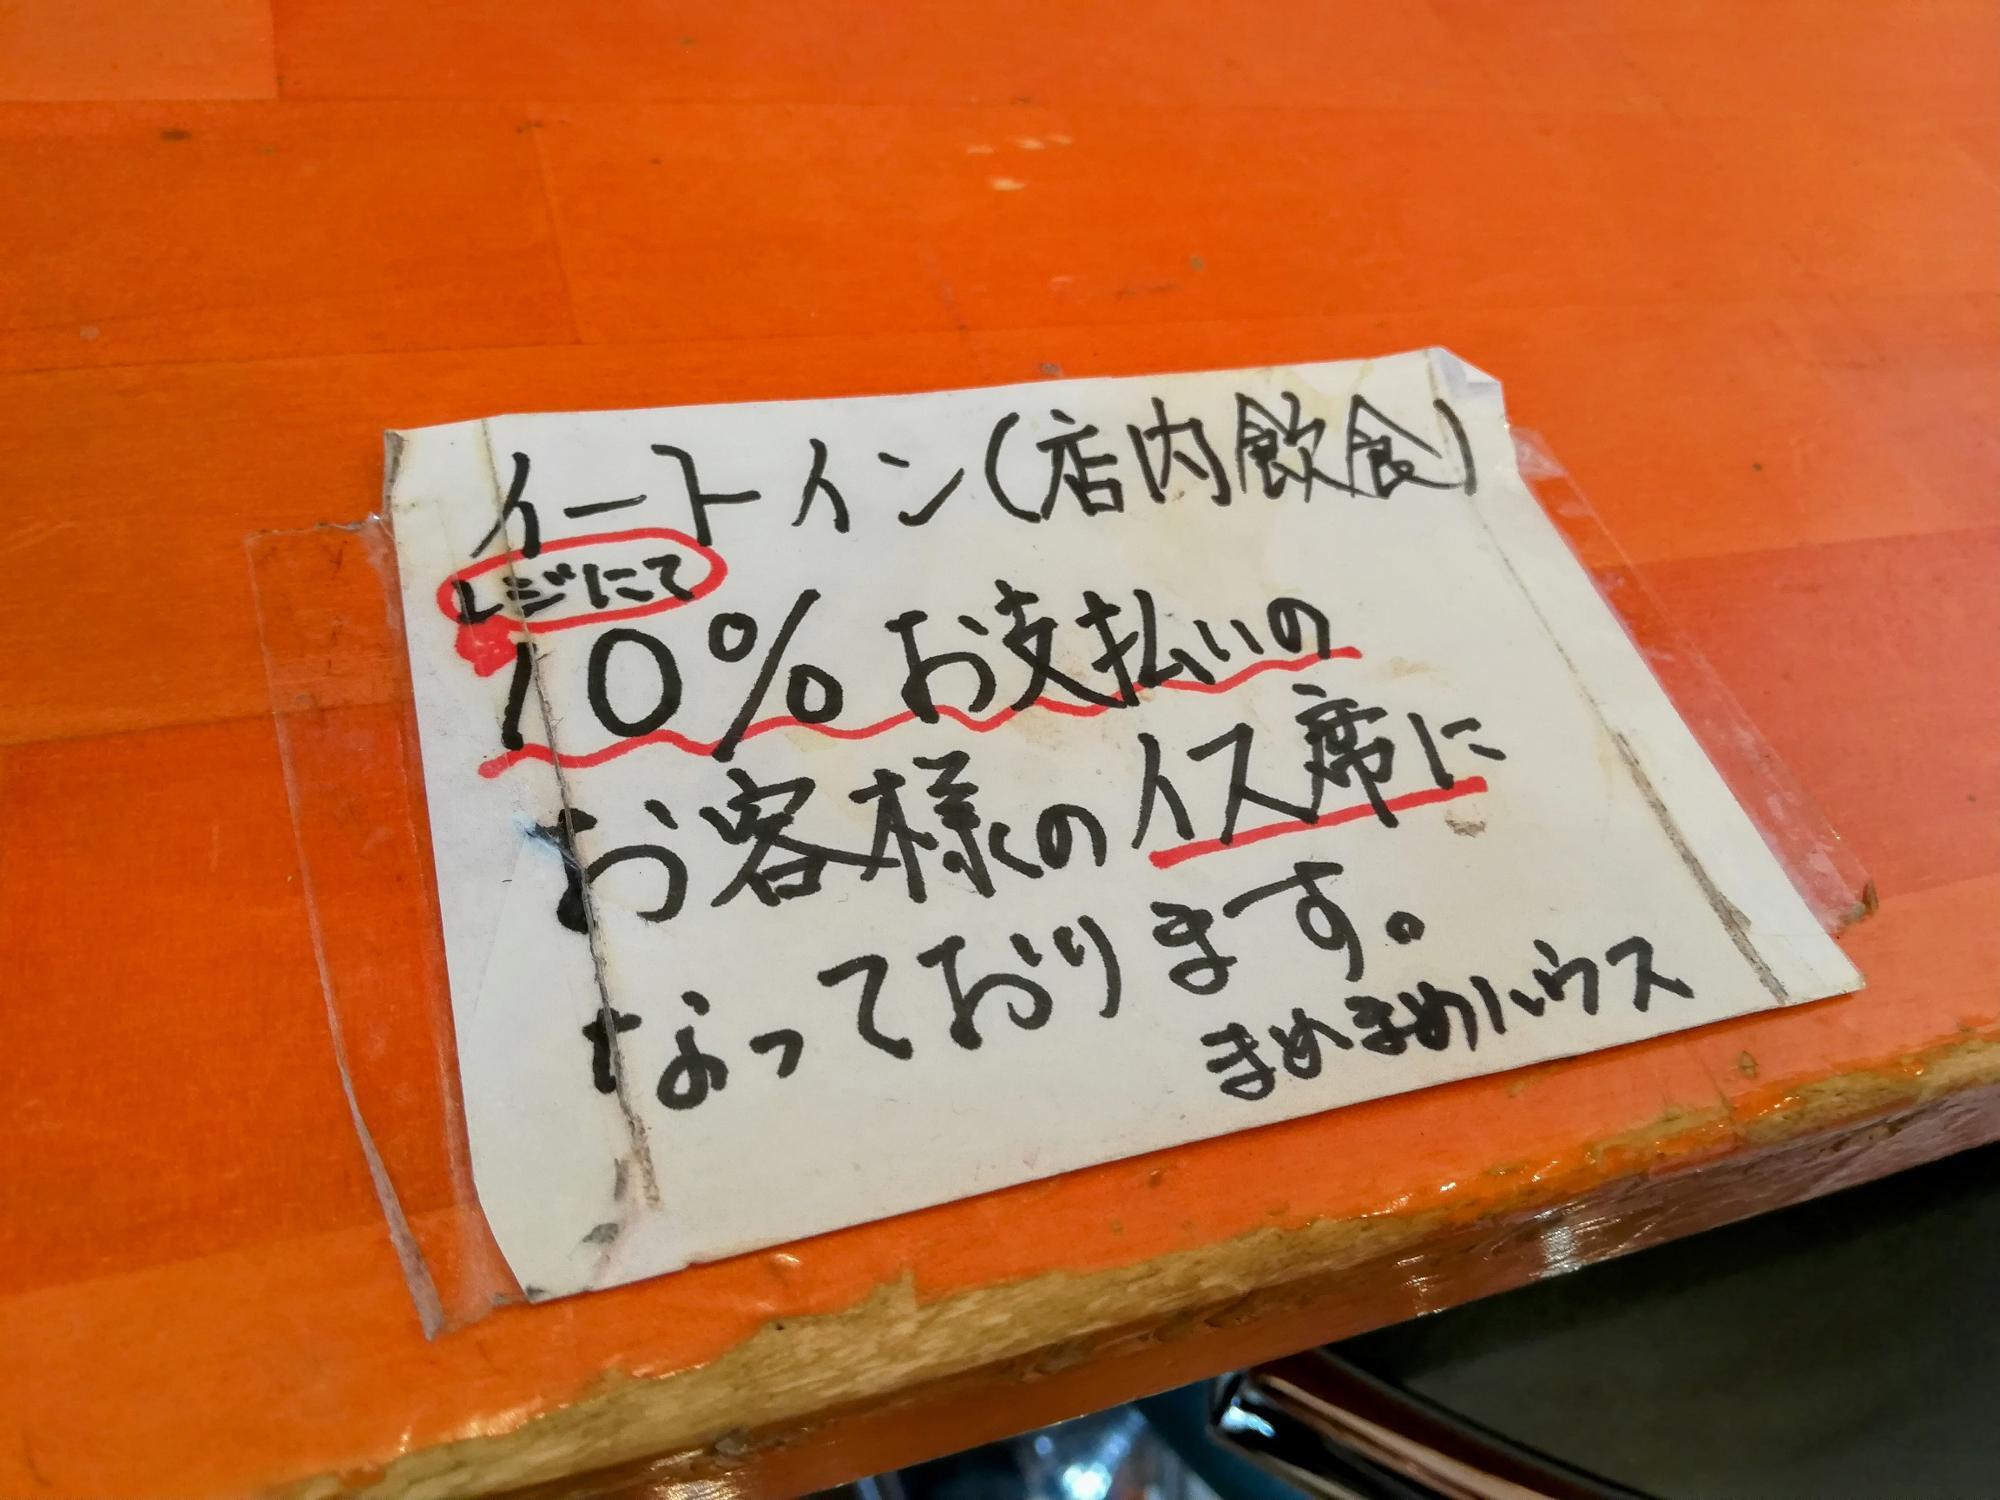 イートイン(店内飲食)
レジにて
10%お支払いの
お客様のイス席に
なっております。
まめまめハウス